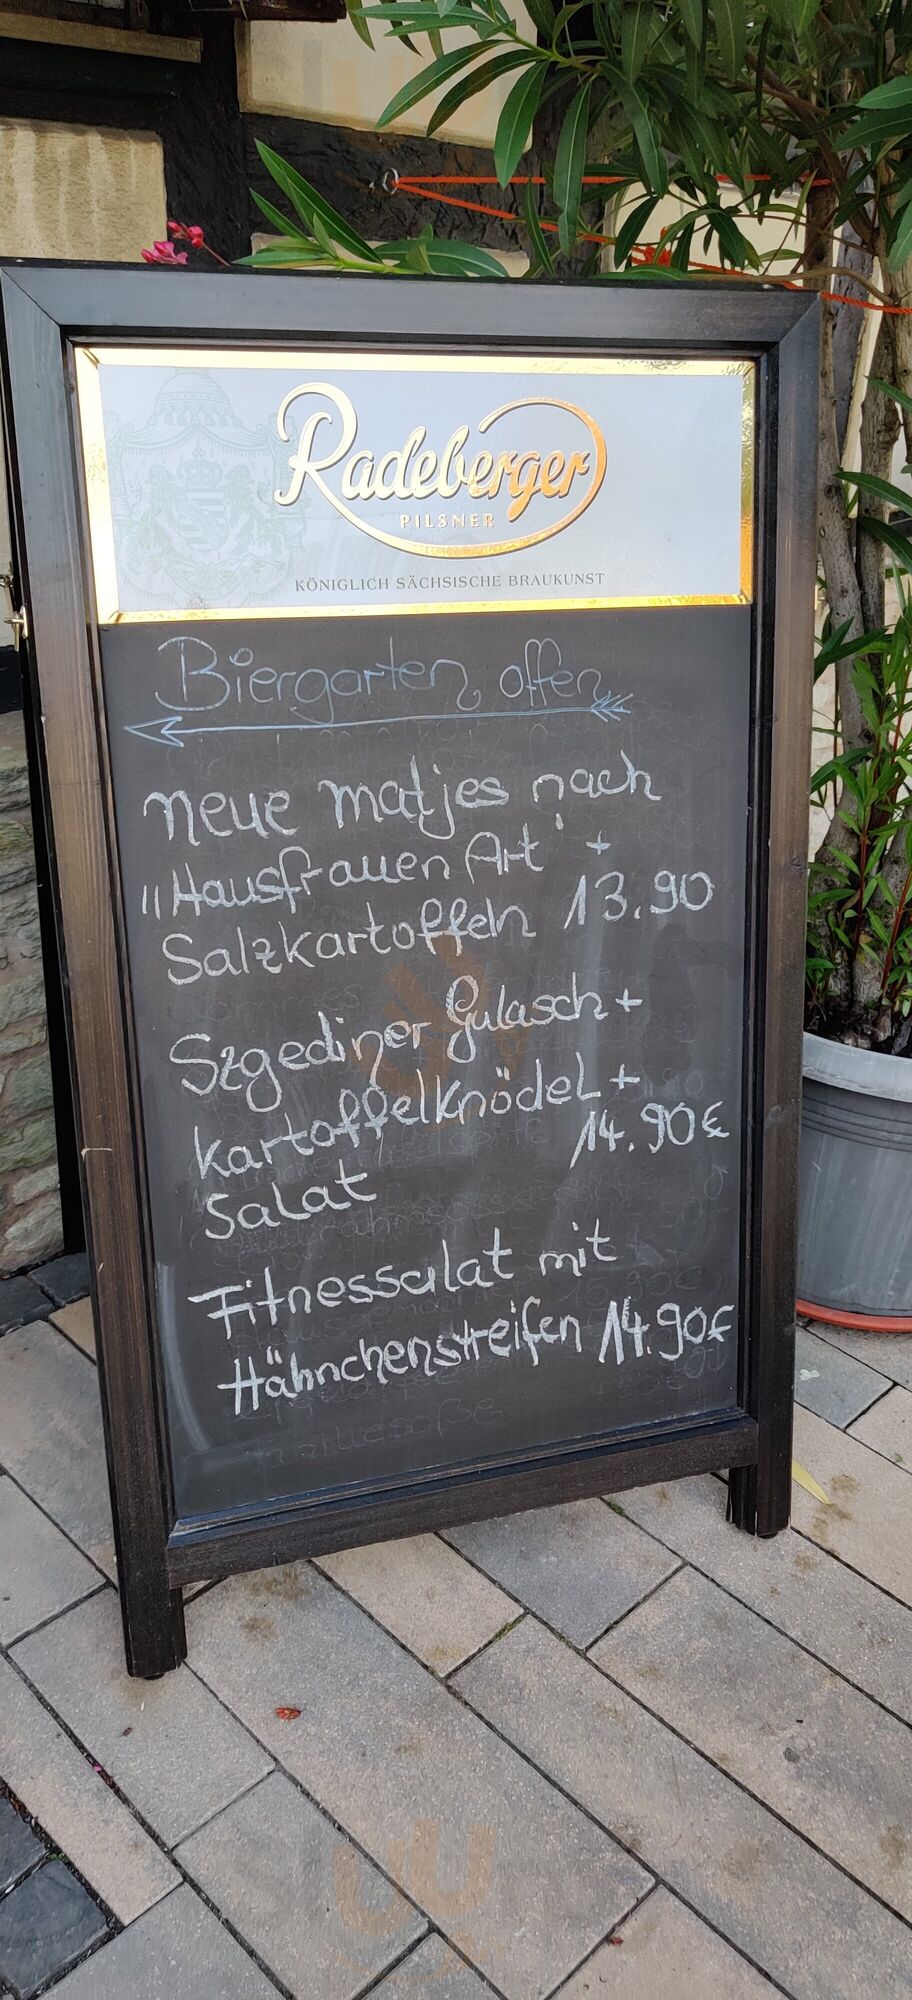 Radeberger
PILSNER
KÖNIGLICH SÄCHSISCHE BRAUKUNST
Biergarten offen
Neue Matjes nach
"Hausfrauen Art" +
Salzkartoffeln 13.90
Szgediner Gulasch +
Kartoffelknödel +
14.90€
Salat
Fitnessalat mit
Hähnchenstreifen 14.90€